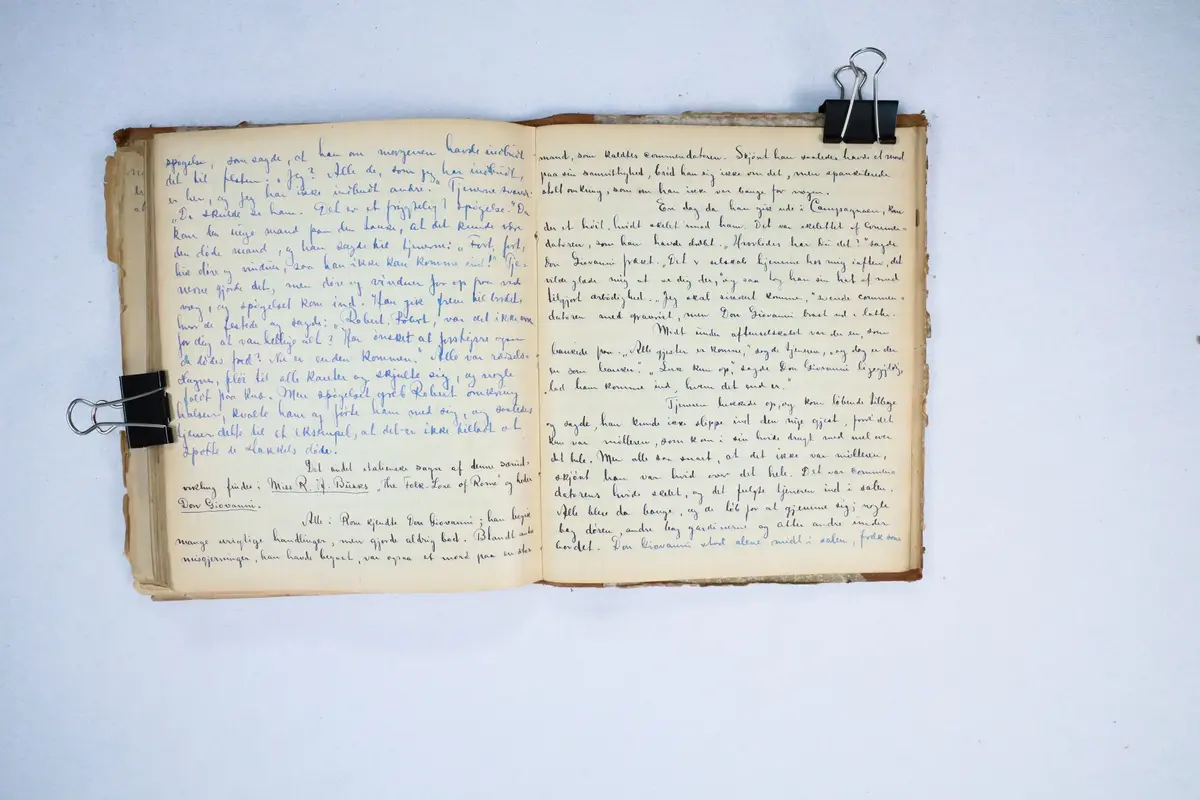 spøgelse, som sagde, at han om morgenen havde indbudt
det til festen. „Jeg? Alle de, som jeg har indbudt,
er her, og jeg har ikke indbudt andre." Tjenerne svarer:
„De skulde se ham. Det er et frygteligt spøgelse." Da
kom den unge mand paa den tanke, at det kunde være
den døde mand, og han sagde til tjenerne: „Fort, fort,
luk døre og vinduer, saa han ikke kan komme ind!" Tje-
nerne gjorde det, men døre og vinduer for op paa vid
væg, og spøgelset kom ind. Han gik frem til bordet,
hvor de festede og sagde: „Robert, Robert, var det ikke nok
for dig at vanhellige alt? Har ønsket at forstyrre ogsaa
de dødes fred? Nu er enden kommen." Alle var rædsels-
slagne, fløi til alle kanter og skjulte sig, og nogle
faldt paa knæ. Men spøgelset greb Robert omkring
halsen, kvalte ham og førte ham med sig, og saaledes
tjener dette til et eksempel, at det er ikke tilladt at
spotte de stakkels døde.
Det andet italienske sagn af denne
vikling findes i Miss R. H. Busks „The Folk-Lore of Rome" og heder
Don Giovanni.
Alle i Rom kjendte Don Giovanni; han begik
mange urigtige handlinger, men gjorde aldrig bod. Blandt andre
misgjerninger, han havde begaaet, var ogsaa et mord paa en
mand, som kaldtes commendatoren. Skjønt han saaledes havde et mord
paa sin samvittighed, brød han sig ikke om det, men spankulerede
stolt omkring, som om han ikke var bange for nogen.
En dag da han gik ude i Campagnaen, kom
der et høit, hvidt skelet imod ham. Det var skelettet af commenda-
datoren, som han havde dræbt. „Hvorledes har De det?" sagde
Don Giovanni frækt. „Det er selskab hjemme hos mig iaften, det
vilde glæde mig at se dig der," og saa tog han sin hat af med
tilgjort ærbødighed. „Jeg skal sandelig komme," svarede commen-
datoren med gravrøst, men Don Giovanni brast ud i latter.
Midt under aftenselskabet var der en, som
bankede paa. „Alle gjester er komne," sagde tjeneren, „og dog er der
en som banker." „Luk kun op," sagde Don Giovanni ligegyldig,
„lad ham komme ind, hvem det end er."
Tjeneren lukkede op, og kom løbende tilbage
og sagde, han kunde ikke slippe ind den nye gjest, fordi det
kun var mølleren, som kom i sin hvide dragt med mel over
det hele. Men alle saa snart, at det ikke var mølleren,
skjønt han var hvid over det hele. Det var commen-
datorens hvide skelet, og det fulgte tjeneren ind i salen.
Alle blev da bange, og de løb for at gjemme sig; nogle
bag døren, andre bag gardinerne og atter andre under
bordet. Don Giovanni stod alene midt i salen, fræk som